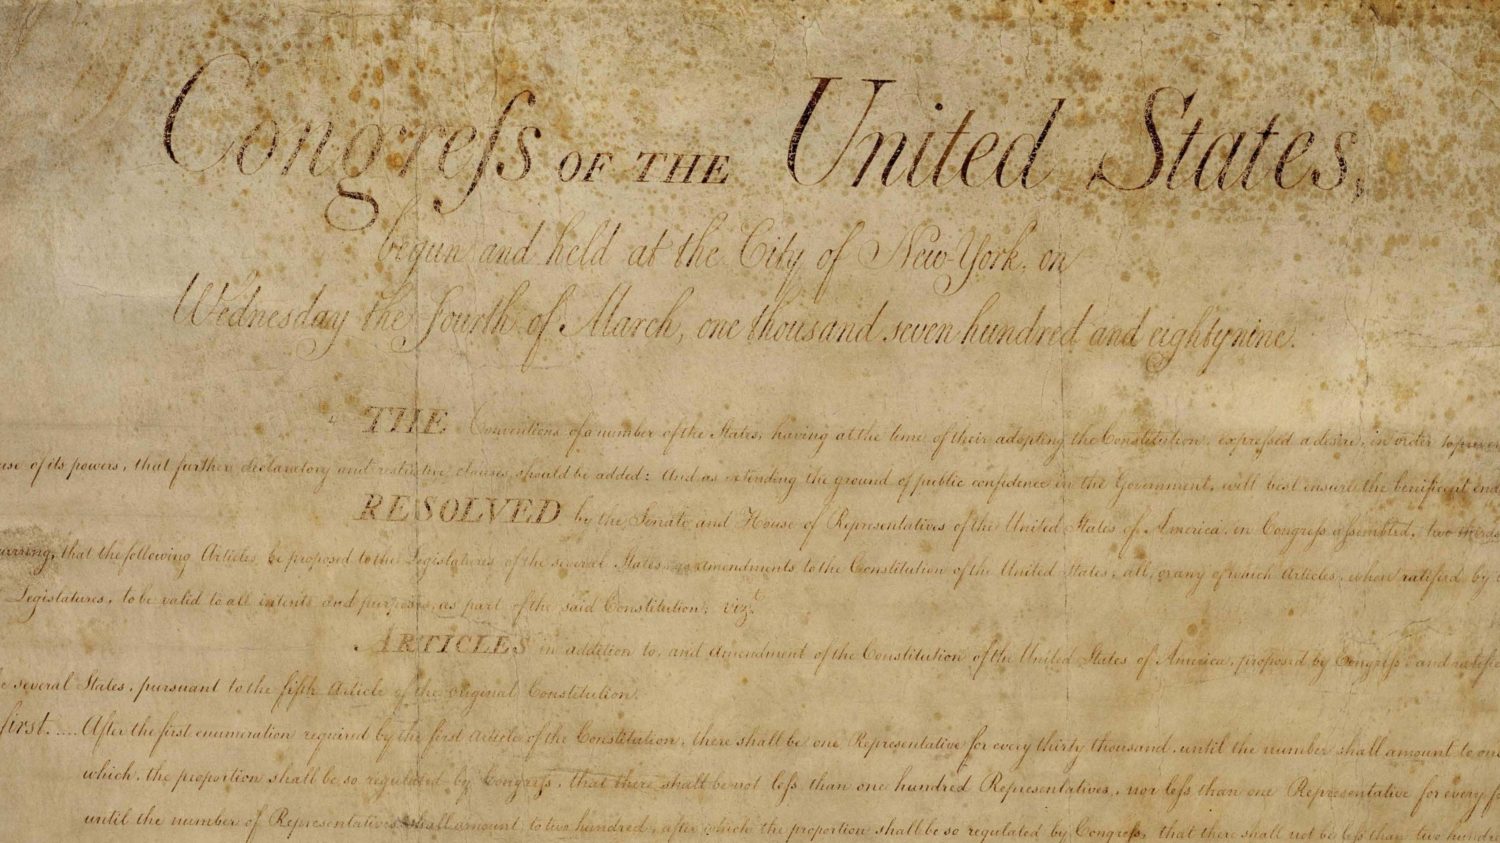 Congreſs OF THE United States,
begun and held at the City of New-York, on
Wednesday the Fourth of March, one thousand seven hundred and eighty nine.
THE Conventions of a number of the States, having at the time of their adopting the Constitution, expressed a desire, in order to prevent
use of its powers, that further declaratory and restrictive clauses should be added: And as extending the ground of public confidence in the Government, will best ensure the beneficent end
RESOLVED by the Senate and House of Representatives of the United States of America, in Congreſs aſsembled, two thirds
urring, that the following Articles be proposed to the Legislatures of the several States, as amendments to the Constitution of the United States, all, or any of which Articles, when ratified by
Legislatures, to be valid to all intents and purposes, as part of the said Constitution; vizt
ARTICLES in addition to, and Amendment of the Constitution of the United States of America, proposed by Congreſs and ratifie
e several States, pursuant to the fifth Article of the original Constitution.
first..... After the first enumeration required by the first Article of the Constitution, there shall be one Representative for every thirty thousand, until the number shall amount to one
which, the proportion shall be so regulated by Congreſs, that there shall be not leſs than one hundred Representatives, nor leſs than one Representative for every f
until the number of Representatives shall amount to two hundred, after which the proportion shall be so regulated by Congreſs, that there shall not be leſs than two hundre